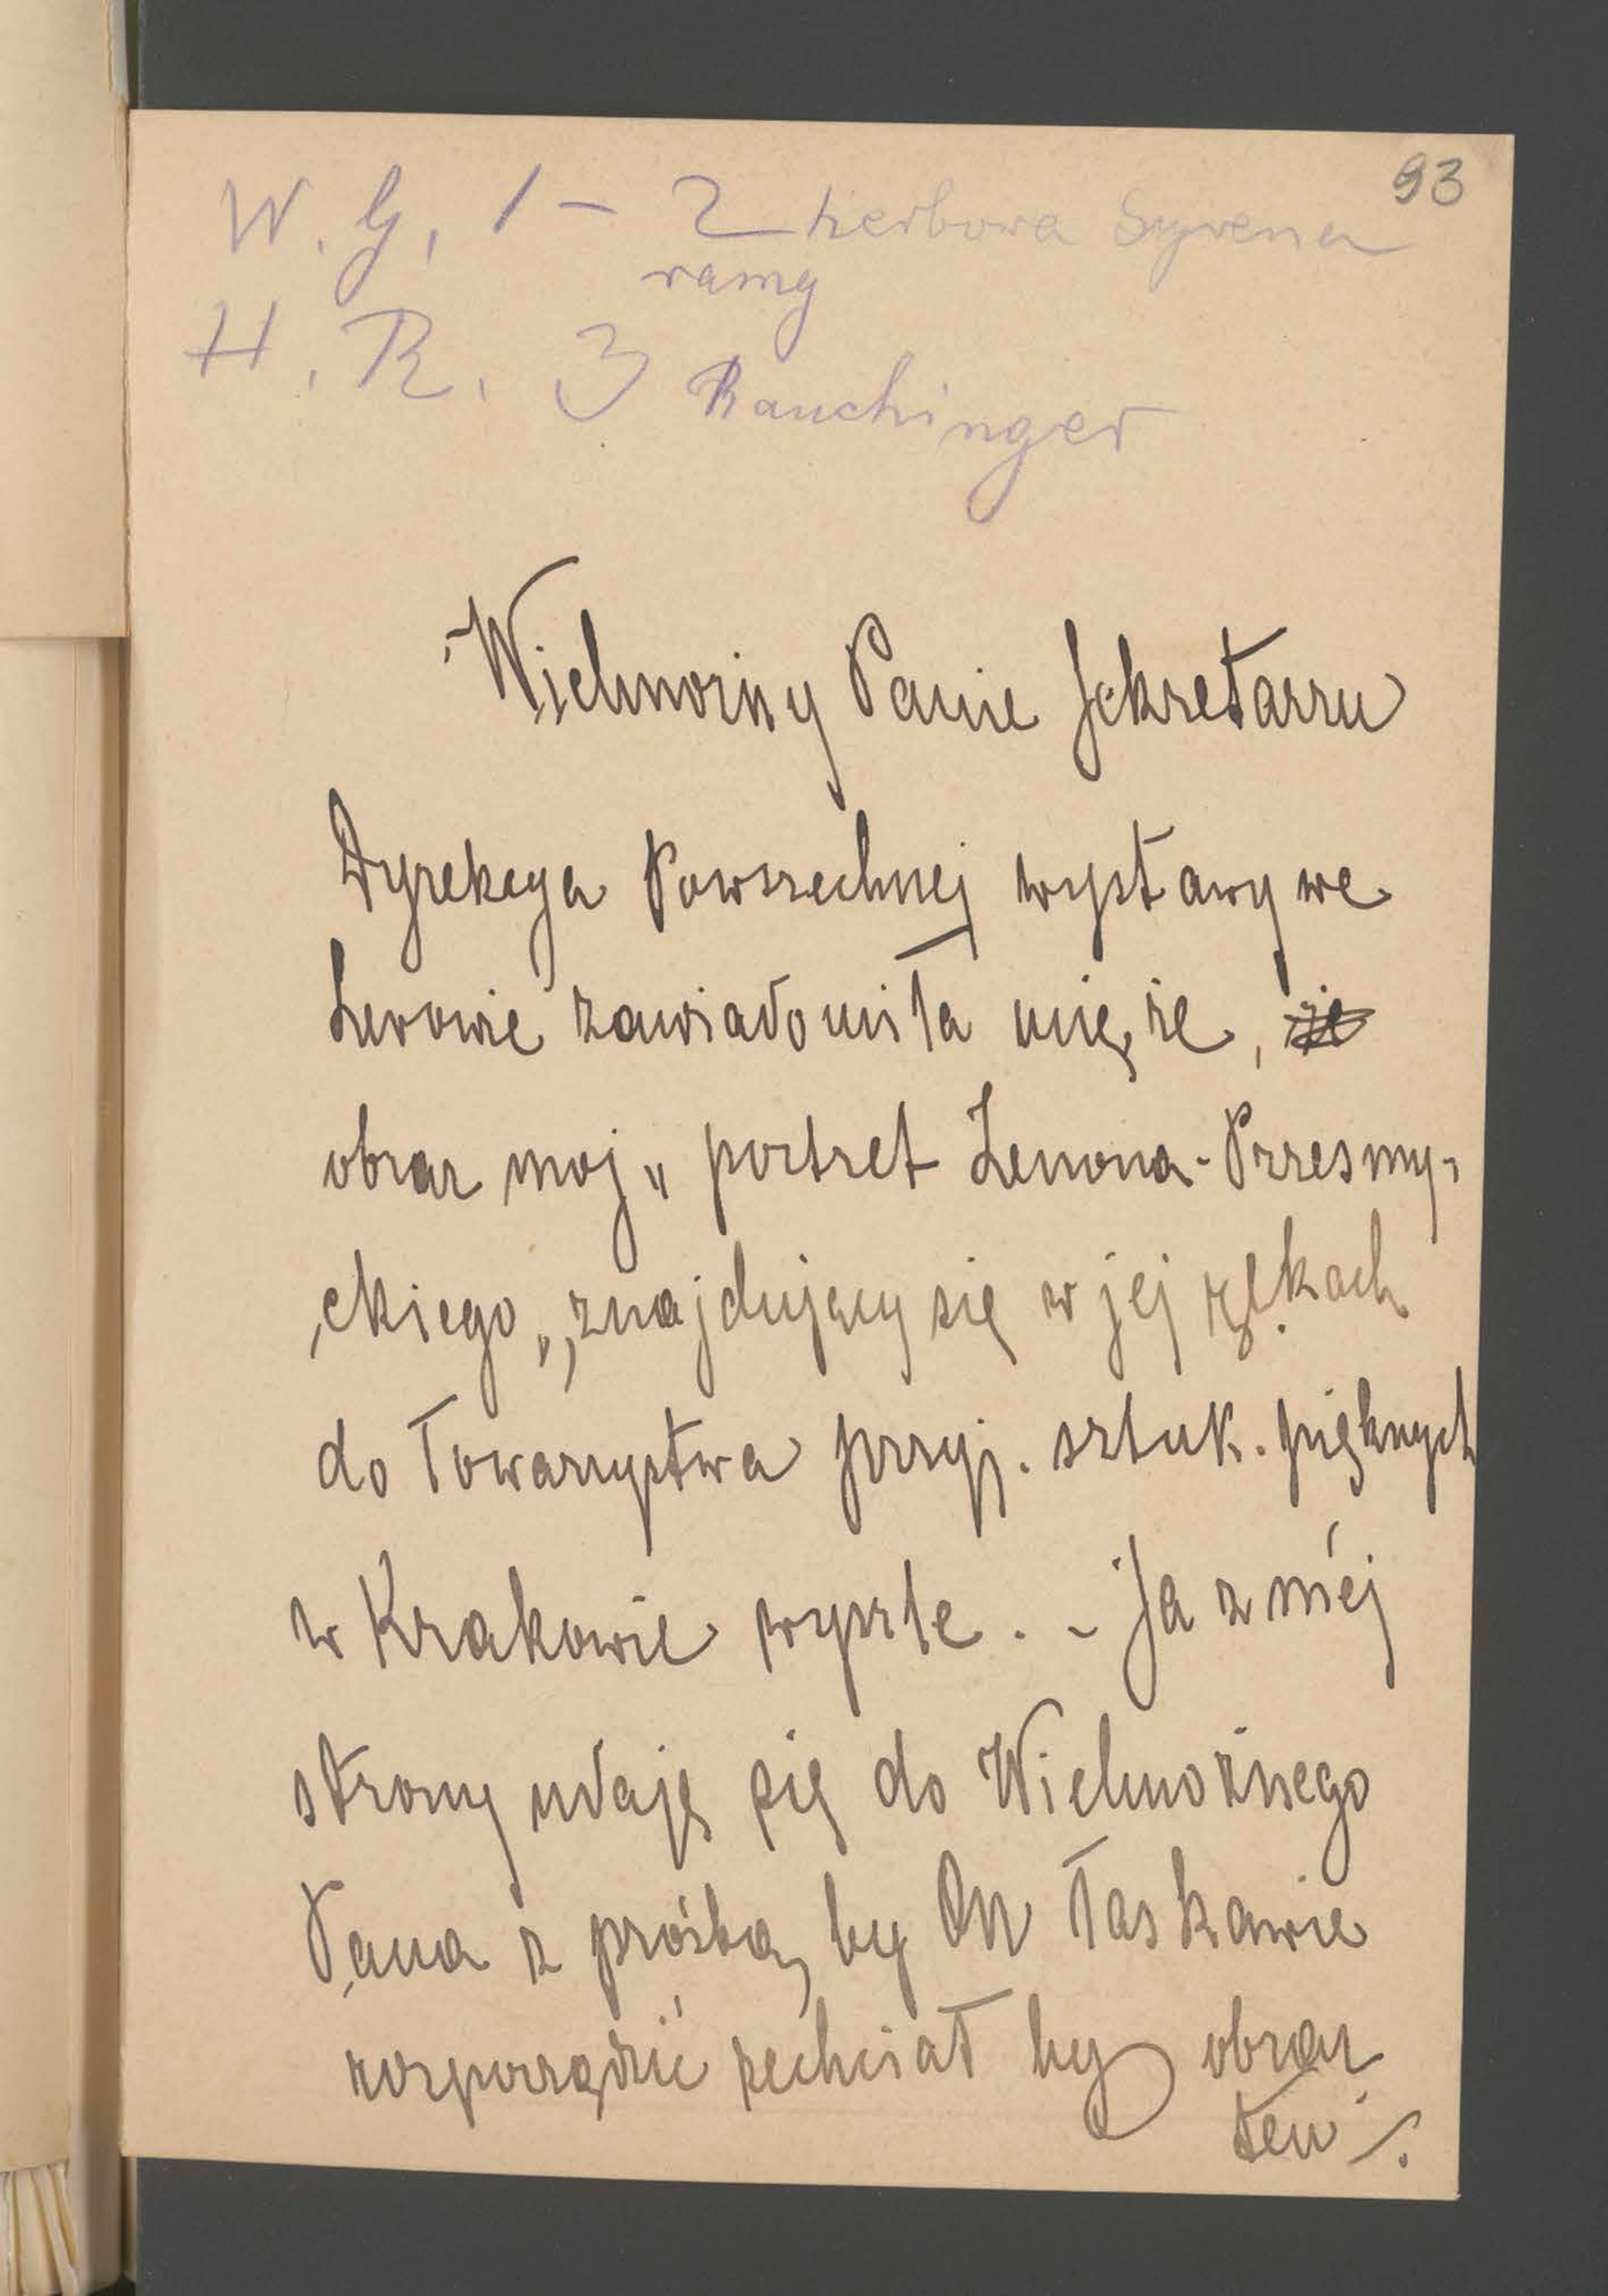 93
W. G. 1 – 2 herbowa Syrena
ramy
H. R. 3 Rauchinger
Wielmożny Panie Sekretarzu
Dyrekcya Powszechnej wystawy we
Lwowie zawiadomiła mię że, że
obraz moj „ portret Zenona - Przesmy-
ckiego „, znajdujący się w jej rękach
do Towarzystwa przyj. sztuk. pięknych
w Krakowie wyszle. - Ja z méj
strony udaję się do Wielmożnego
Pana z prośbą by On łaskawie
rozporządzić zechciał by obraz
ten /.